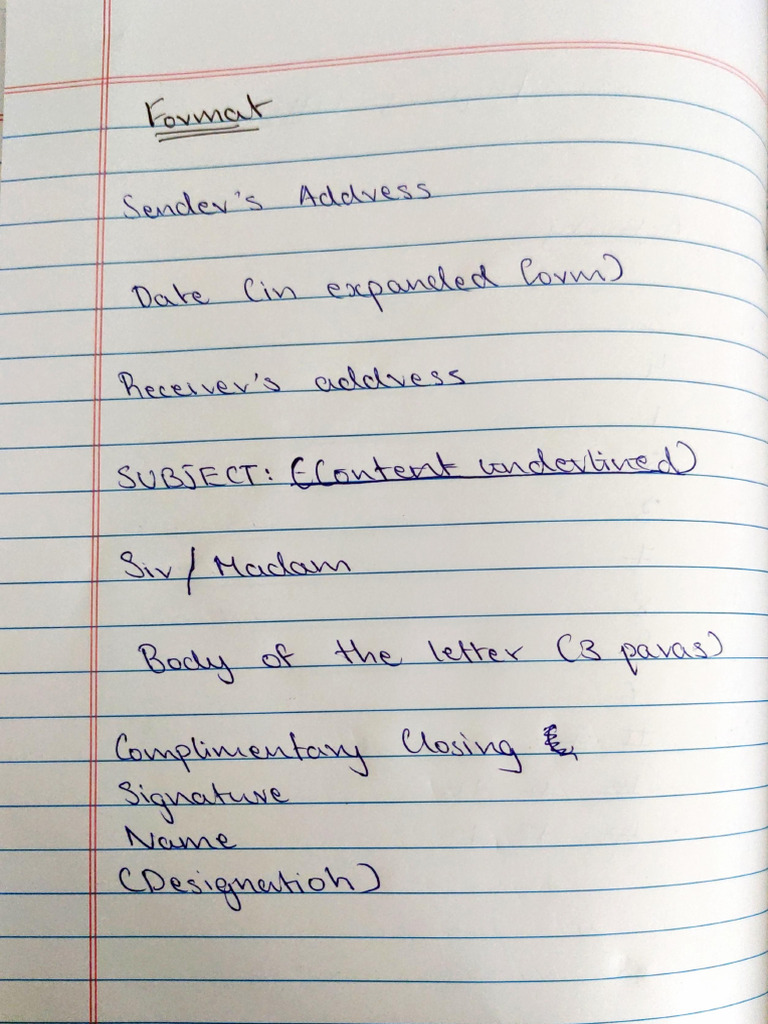 Format
Sender's Address
Date (in expanded form)
Receiver's address
SUBJECT: (Content underlined)
Sir/Madam
Body of the letter (3 paras)
Complimentary Closing
Signature
Name
(Designation)